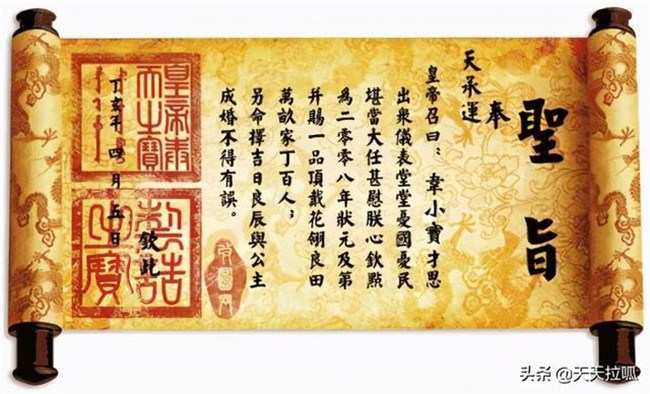 聖旨
奉
天承運
皇帝召曰：韋小寶才思
出衆儀表堂堂憂國憂民
堪當大任甚慰朕心欽點
爲二零零八年狀元及第
并賜一品頂戴花翎良田
萬畝家丁百人；
另命擇吉日良辰與公主
成婚不得有誤。
欽此
丁亥年四月五日
皇帝奉
天之寶
制誥
之寶
头条 @天天拉呱